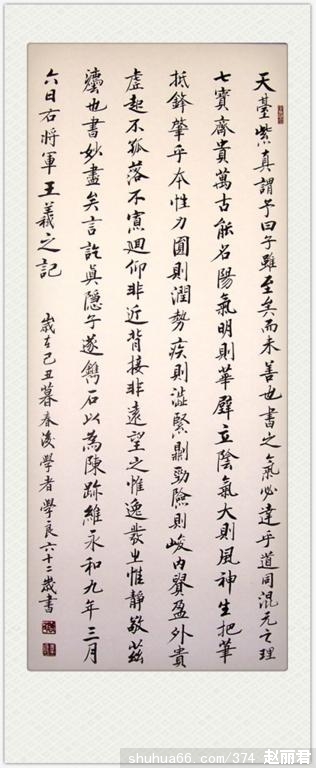 天臺紫真謂予曰子雖至矣而未善也書之氣必達乎道同混元之理
七寶齊貴萬古能名陽氣明則華壁立陰氣大則風神生把筆
抵鋒肇乎本性力圓則潤勢疾則澁緊則勁險則峻內盈外貴
虛起不孤落不寡迴仰非近背接非遠望之惟逸發之惟靜敬茲
灋也書妙盡矣言訖眞隱子遂鐫石以為陳跡維永和九年三月
六日右將軍王羲之記
歲在己丑暮春後學者學良六十二歲書
shuhua66.com/374 赵丽君